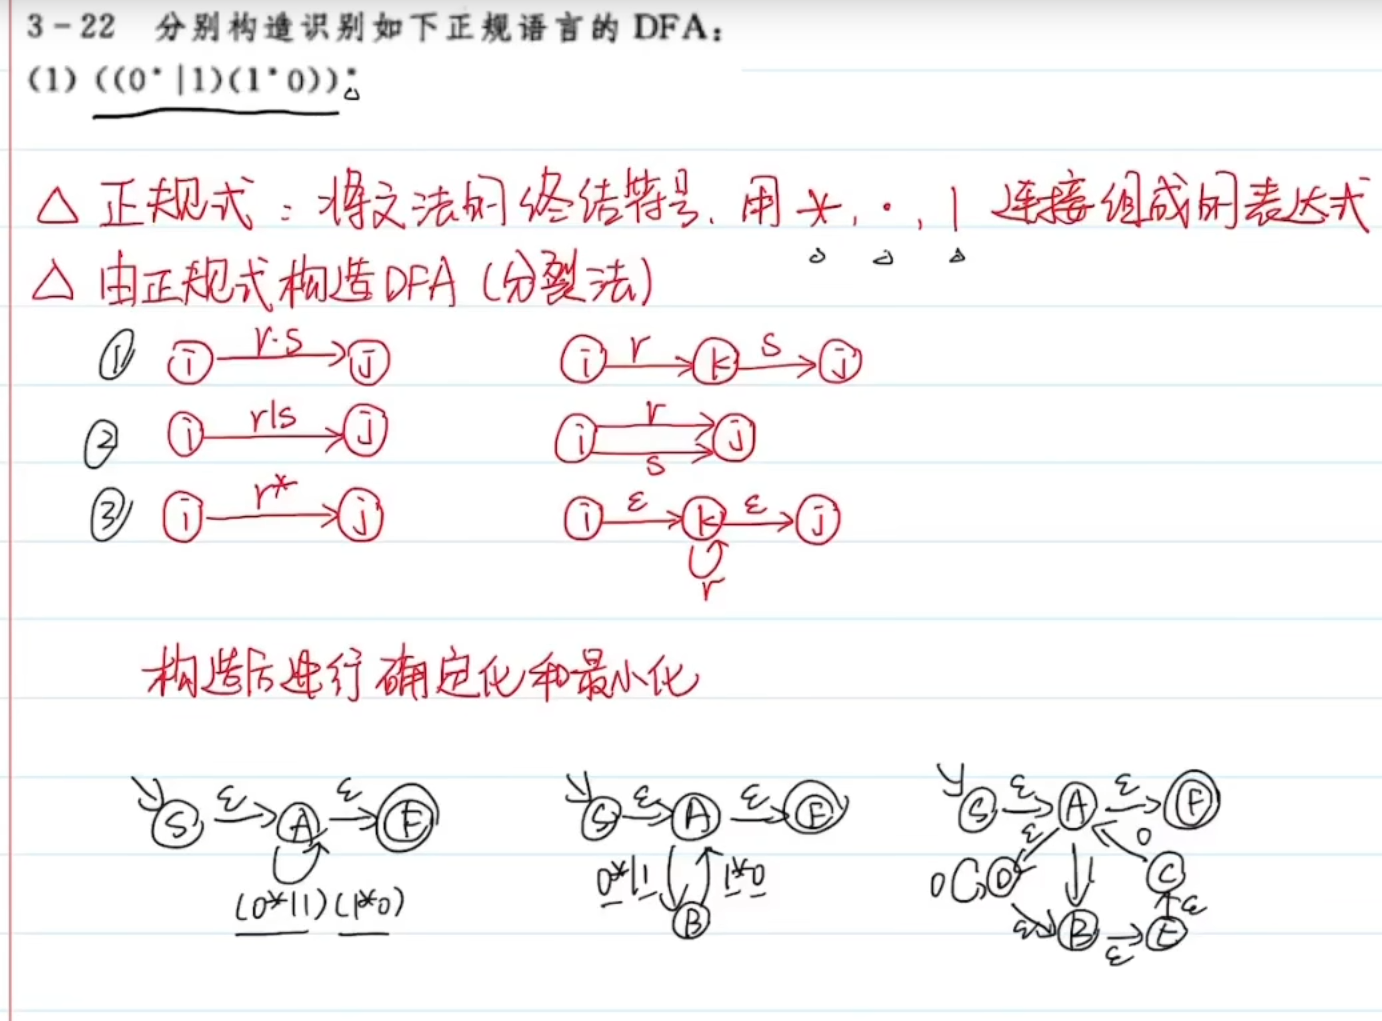 3-22 分别构造识别如下正规语言的 DFA:
(1) ((0*|1)(1*0))*;
△ 正规式:将文法的终结符号、用 *, ·, | 连接组成的表达式
△ 由正规式构造DFA (分裂法)
① i r·s j i r k s j
② i r|s j i r s j
③ i r* j i ε k ε j r
构造后进行确定化和最小化
S ε A ε F S ε A ε F S ε A ε F
(0*|1)(1*0) 0*|1 1*0 B 0 D ε 1 0 C ε B ε E ε